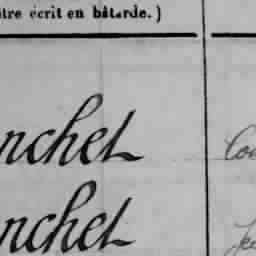 être écrit en bâtarde.)
nchet
nchet